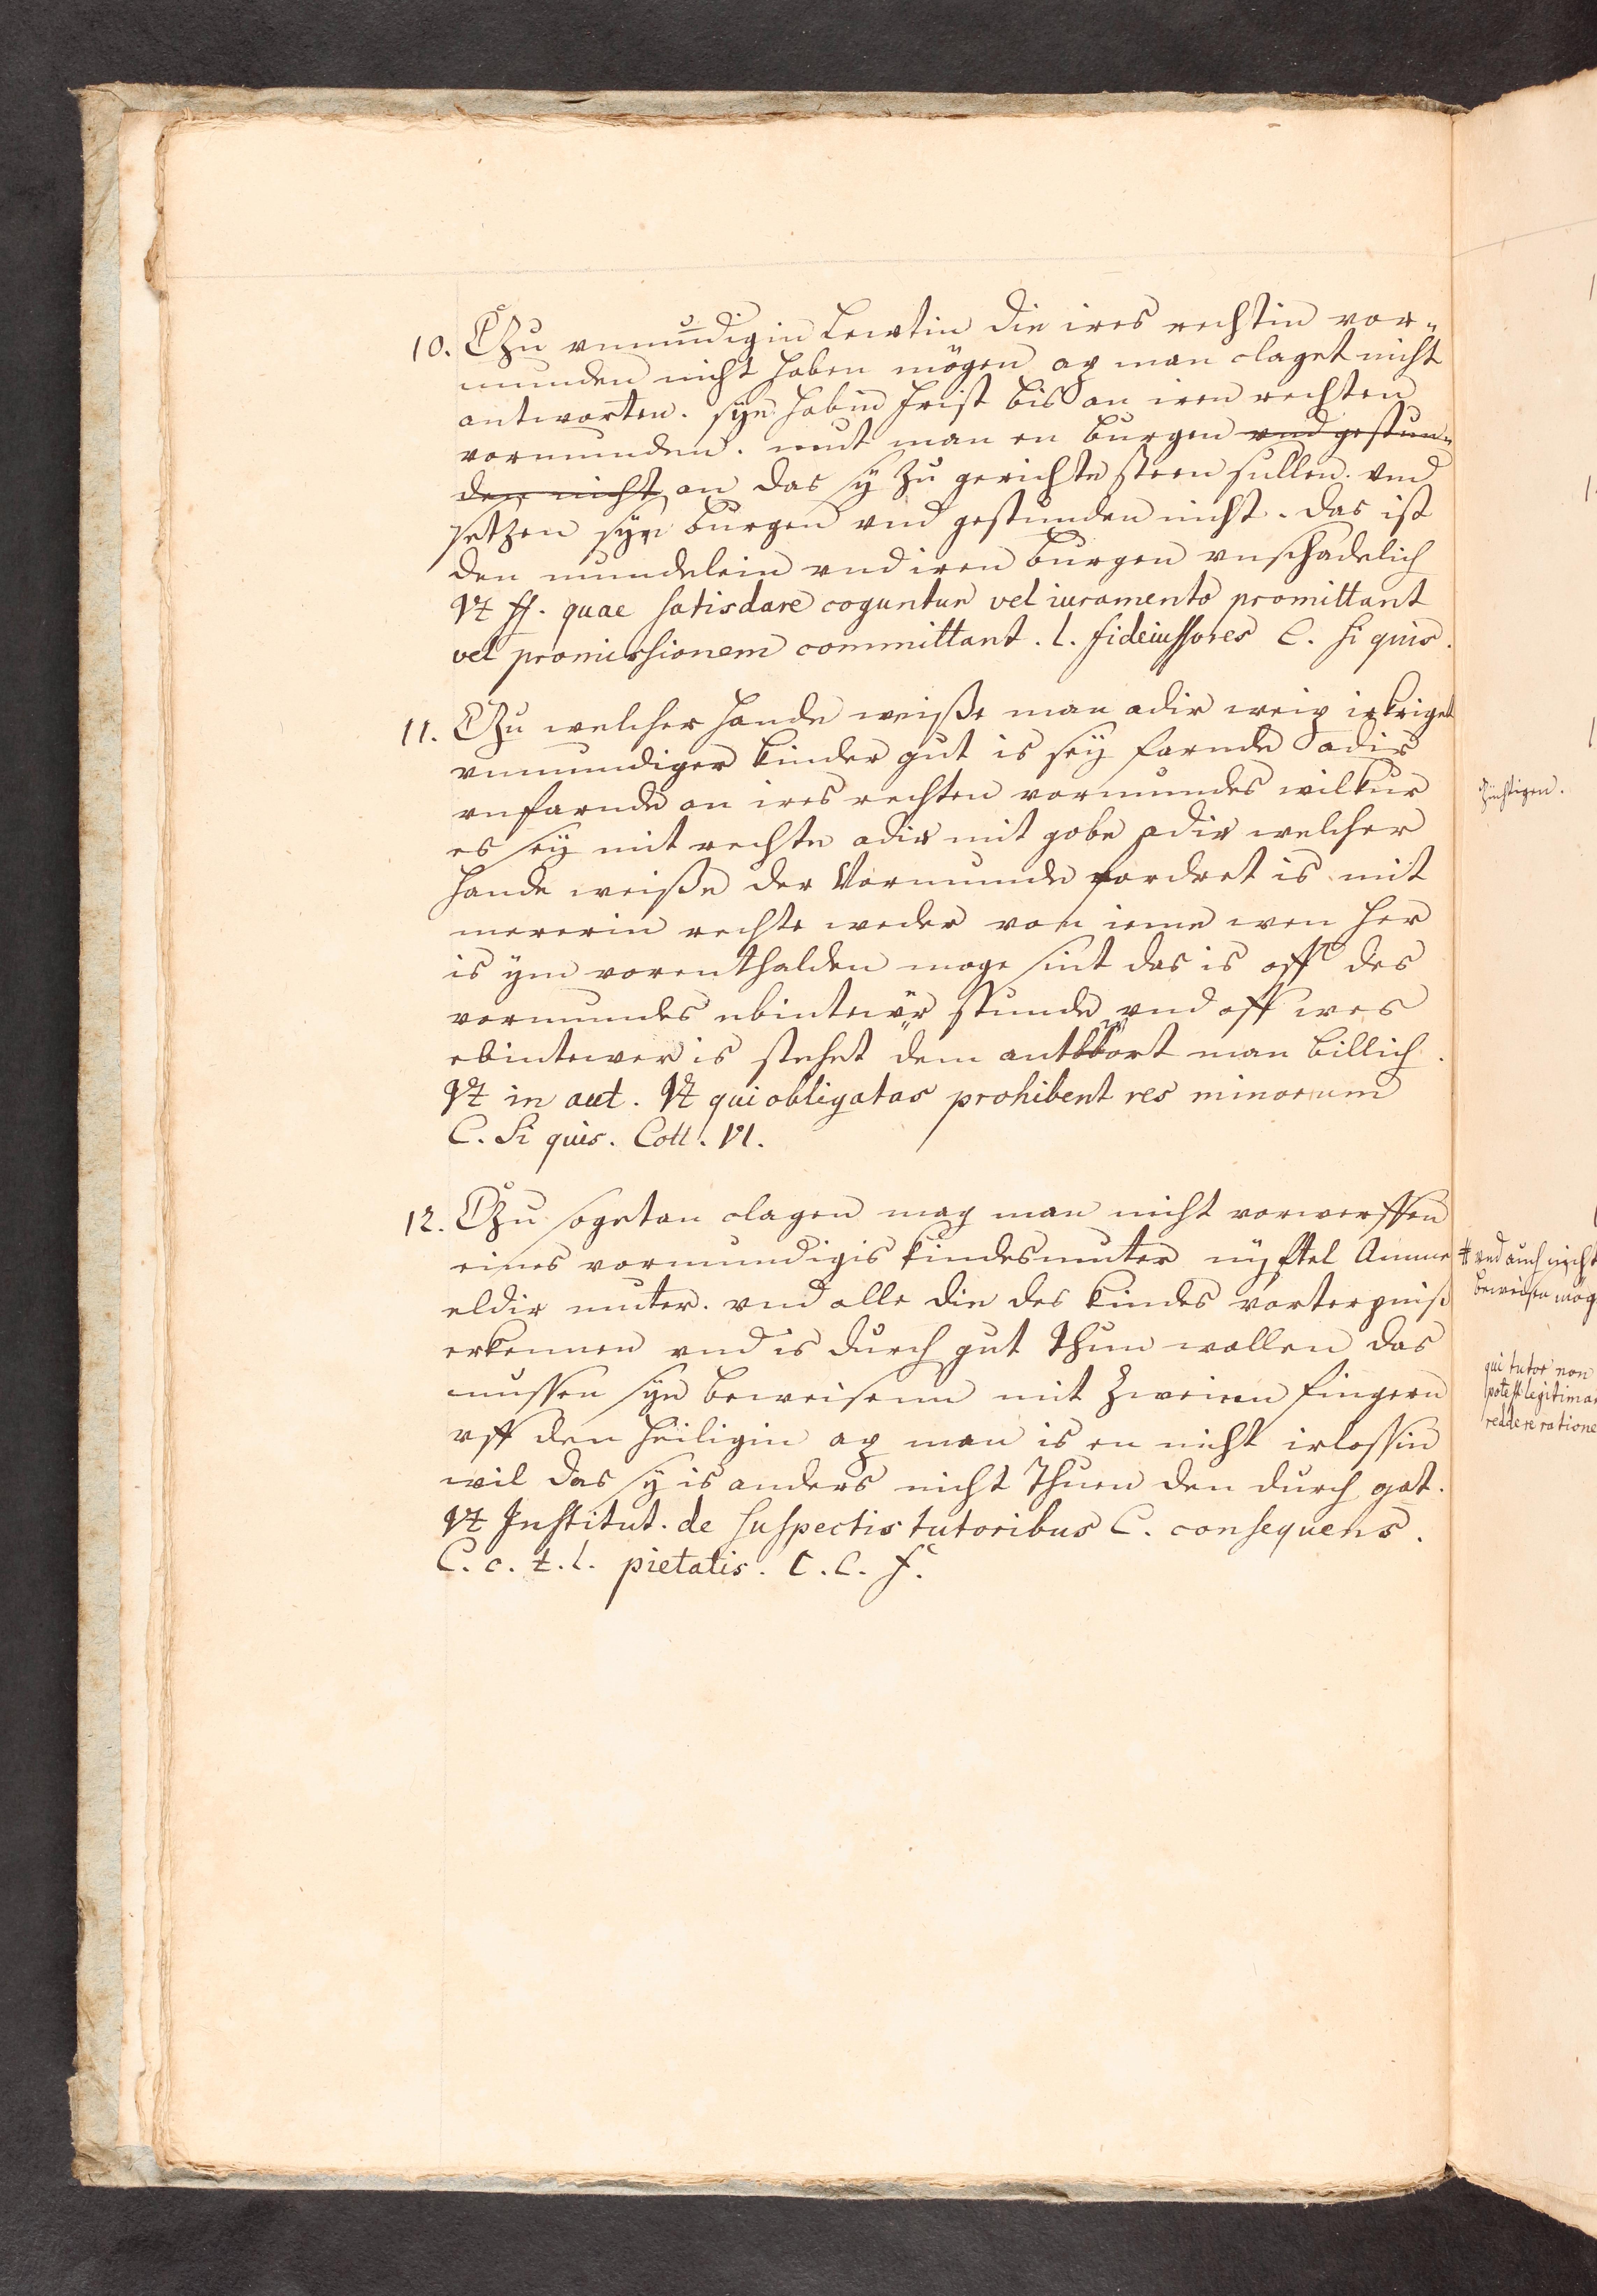 10. Czu vnmundigin Lewtin die ires rechtin vor„
munden nicht haben mögen ap man claget nicht
antworten. sÿn habin frist bis an iren rechten
vormunden. mut man en burgen vnd gestun„
den nicht an das sÿ zu gerichte steen sullen. vnd
setzen sÿn burgen vnd gestunden nicht. das ist
den mundelein vnd iren burgen vnschadelich
Vt ff. quae satisdare coguntur vel iuramento promittant
vel promissionem committant. l. fideiussores C. si quis.
11. Czu welcher hande weiße man adir weip irkriget
vnmundiger kinder gut is seÿ farnde adir
vnfarnde an ires rechten vormundes wilkur
es seÿ mit rechte adir mit gobe adir welcher
hande weiße der Vormunde fordert is mit
mererin rechte weder von ieme wen her
is ÿm vorenthalden moge sint das is off des
vormundes ebintewr stunde vnd off wes
ebintewer is stehet dem antwort man billich.
Vt in aut. Vt qui obligatas prohibent res minorum
C. Si quis. Coll. VI.
12. Czu sogetan clagen mag man nicht vorwerffen
eines vormundigis kindesmuter nÿftel Amme
eldir muter. vnd alle die des kindes vorterpniß
erkennen vnd is durch gut thun wollen das
mussen sÿn beweisenn mit zweien fingern
vff den heiligin ap man is en nicht irlossin
wil das sÿ is anders nicht thuen den durch gat.
Vt Institut. de suspectis tutoribus C. consequens.
C. c. t. l. pietatis. C. C. f.
züchtigen.
# vnd auch nicht
beweisen mög
qui tutor non
potest legitimam
reddere ratione